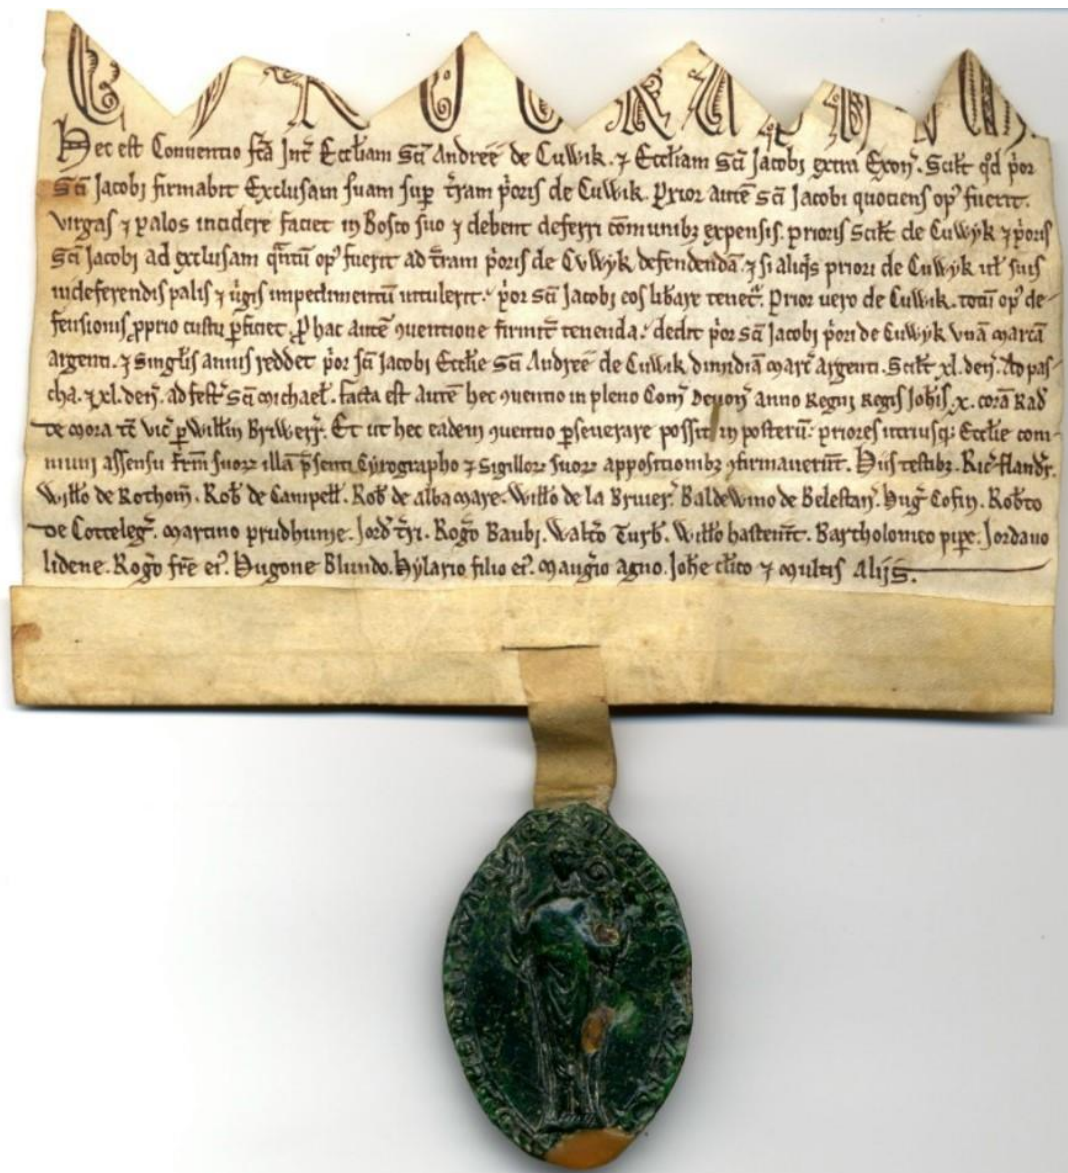 CYROGRAPHUM.
Hec est Conuentio fc̄a Int̄ Eccl̄iam Sc̄i Andreę de Cuwik. ⁊ Eccl̄iam Sc̄i Jacobi extra Exon̄. Scilic̄ qd̄ p̓or
Sc̄i Jacobi firmabit Exclusam suam sup̱ t̄ram p̓oris de Cuwik. Prior autē Sc̄i Jacobi quociens opꝰ fuerit.
virgas ⁊ palos incidere faciet in Bosco suo ⁊ debent deferri cōmunibꝫ expensis. prioris Scilic̄ de Cuwyk ⁊ p̓oris
Sc̄i Jacobi ad exclusam q̄ntū opꝰ fuerit ad t̄ram p̓oris de Cuwyk defendendā. ⁊ si aliq̓s priori de Cuwyk ul̄ suis
in deferendis palis ⁊ v̓gis impedimentū intulerit. p̓or Sc̄i Jacobi eos lib̓are tenet̓. Prior uero de Cuwik. totū opꝰ de-
fensionis ꝓprio custu ꝑficiet. ꝓ hac autē ꝯuentione firmit̄ tenenda. dedit p̓or Sc̄i Jacobi p̓ori de Cuwyk vnā marcā
argenti. ⁊ singul̄is annis reddet p̓or Sc̄i Jacobi Eccl̄ie Sc̄i Andreę de Cuwik dimidiā marc̄ argenti. Scilic̄ xl. den̄. Ad pas-
cha. ⁊ xl. den̄. ad fest̄ Sc̄i michael̄. facta est autē hec ꝯuentio in pleno Com̄ Deuon̄ Anno Regni Regis Joh̄is. x. corā Rad̄
de mora tc̄ vic̄ ꝑ Will̄m Briwerr̄. Et ut hec eadem ꝯuentio ꝑseuerare possit in posterū. priores utriusqꝫ Eccl̄ie com-
muni assensu fr̄m suoꝝ illā p̄senti Cyrographo ⁊ Sigilloꝝ suoꝝ appositionibꝫ ꝯfirmauerūt. Hiis testibꝫ. Ric̄ flandr̄.
Will̄o de Rothom̄. Rob̄ de Campell̄. Rob̄ de alba mare. Will̄o de la Bruier̄. Baldewino de Belestan̄. Huḡ Cofin. Rob̄to
de Cotteleḡ. martino prudhume. Jord̄ t̄ri. Rog̓o Baubi. Walt̓o Turb̄. Will̄o hastem̄t. Bartholomeo pipe. Jordano
lidene. Rog̓o fr̄e eiꝰ. Hugone Blundo. Hylario filio eiꝰ. maug̓io agno. Joh̄e cl̄ico ⁊ multis Aliis.